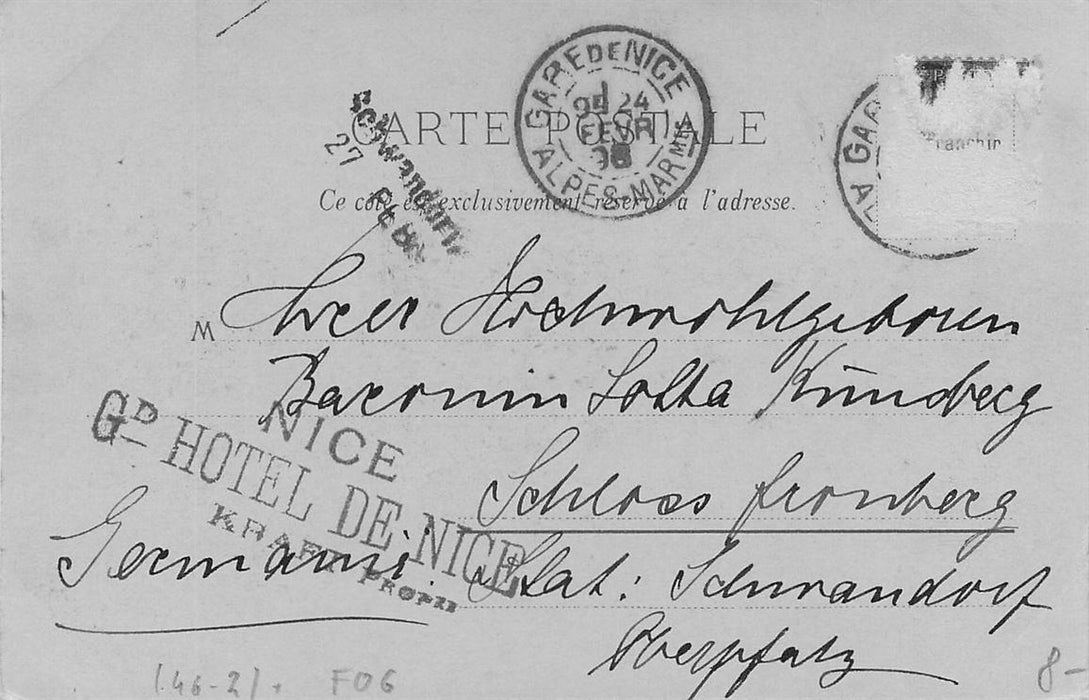 CARTE POSTALE
Ce côté est exclusivement réservé à l'adresse.
GARE DE NICE
24
FEVR
ALPES-MARMES
GAR
AL
Franchir
Schwandorf
27 Feb
M
Hochwohlgeboren
Baronin Lotta Künsberg
Schloss Fronberg
Stat: Schwandorf
Oberpfalz
Germania.
NICE
GD HOTEL DE NICE
KRAFT PROPRE
(46-2). F06
8-